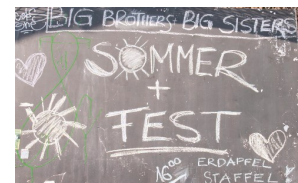 BIG BROTHERS BIG SISTERS
SOMMER
+
FEST
16⁰⁰ ERDÄPFEL
STAFFEL